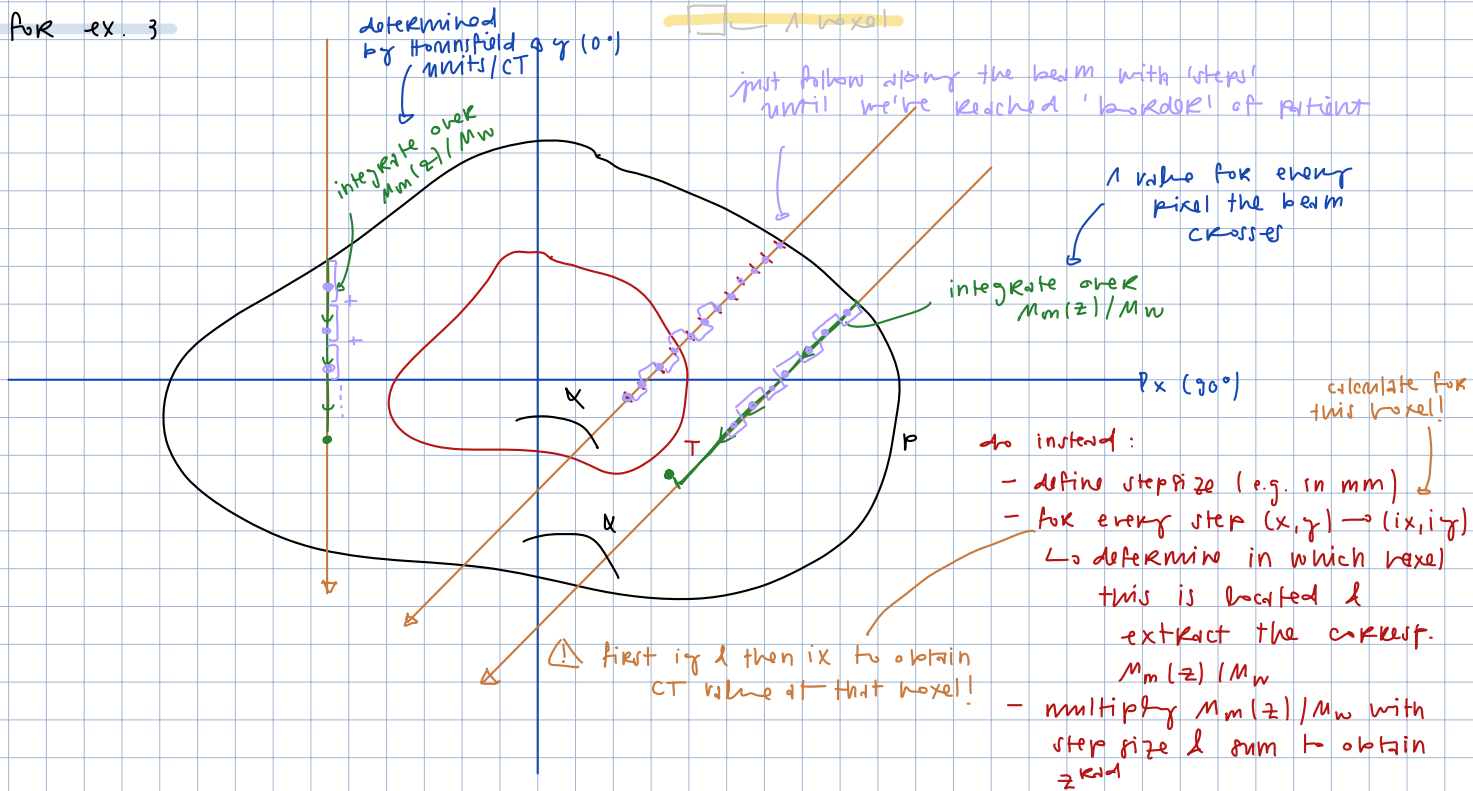 for ex. 3
determined
by Hounsfield
units/CT
y (0°)
1 voxel
just follow along the beam with 'steps'
until we've reached 'border' of patient
integrate over
μm(z)/μw
1 value for every
pixel the beam
crosses
integrate over
μm(z)/μw
+
+
α
x (90°)
calculate for
this voxel!
T
P
do instead:
- define stepsize (e.g. in mm)
- for every step (x,y) → (ix,iy)
↳ determine in which voxel
this is located &
extract the corresp.
μm(z)/μw
- multiply μm(z)/μw with
step size & sum to obtain
z rad
α
⚠ first iy & then ix to obtain
CT value at that voxel!